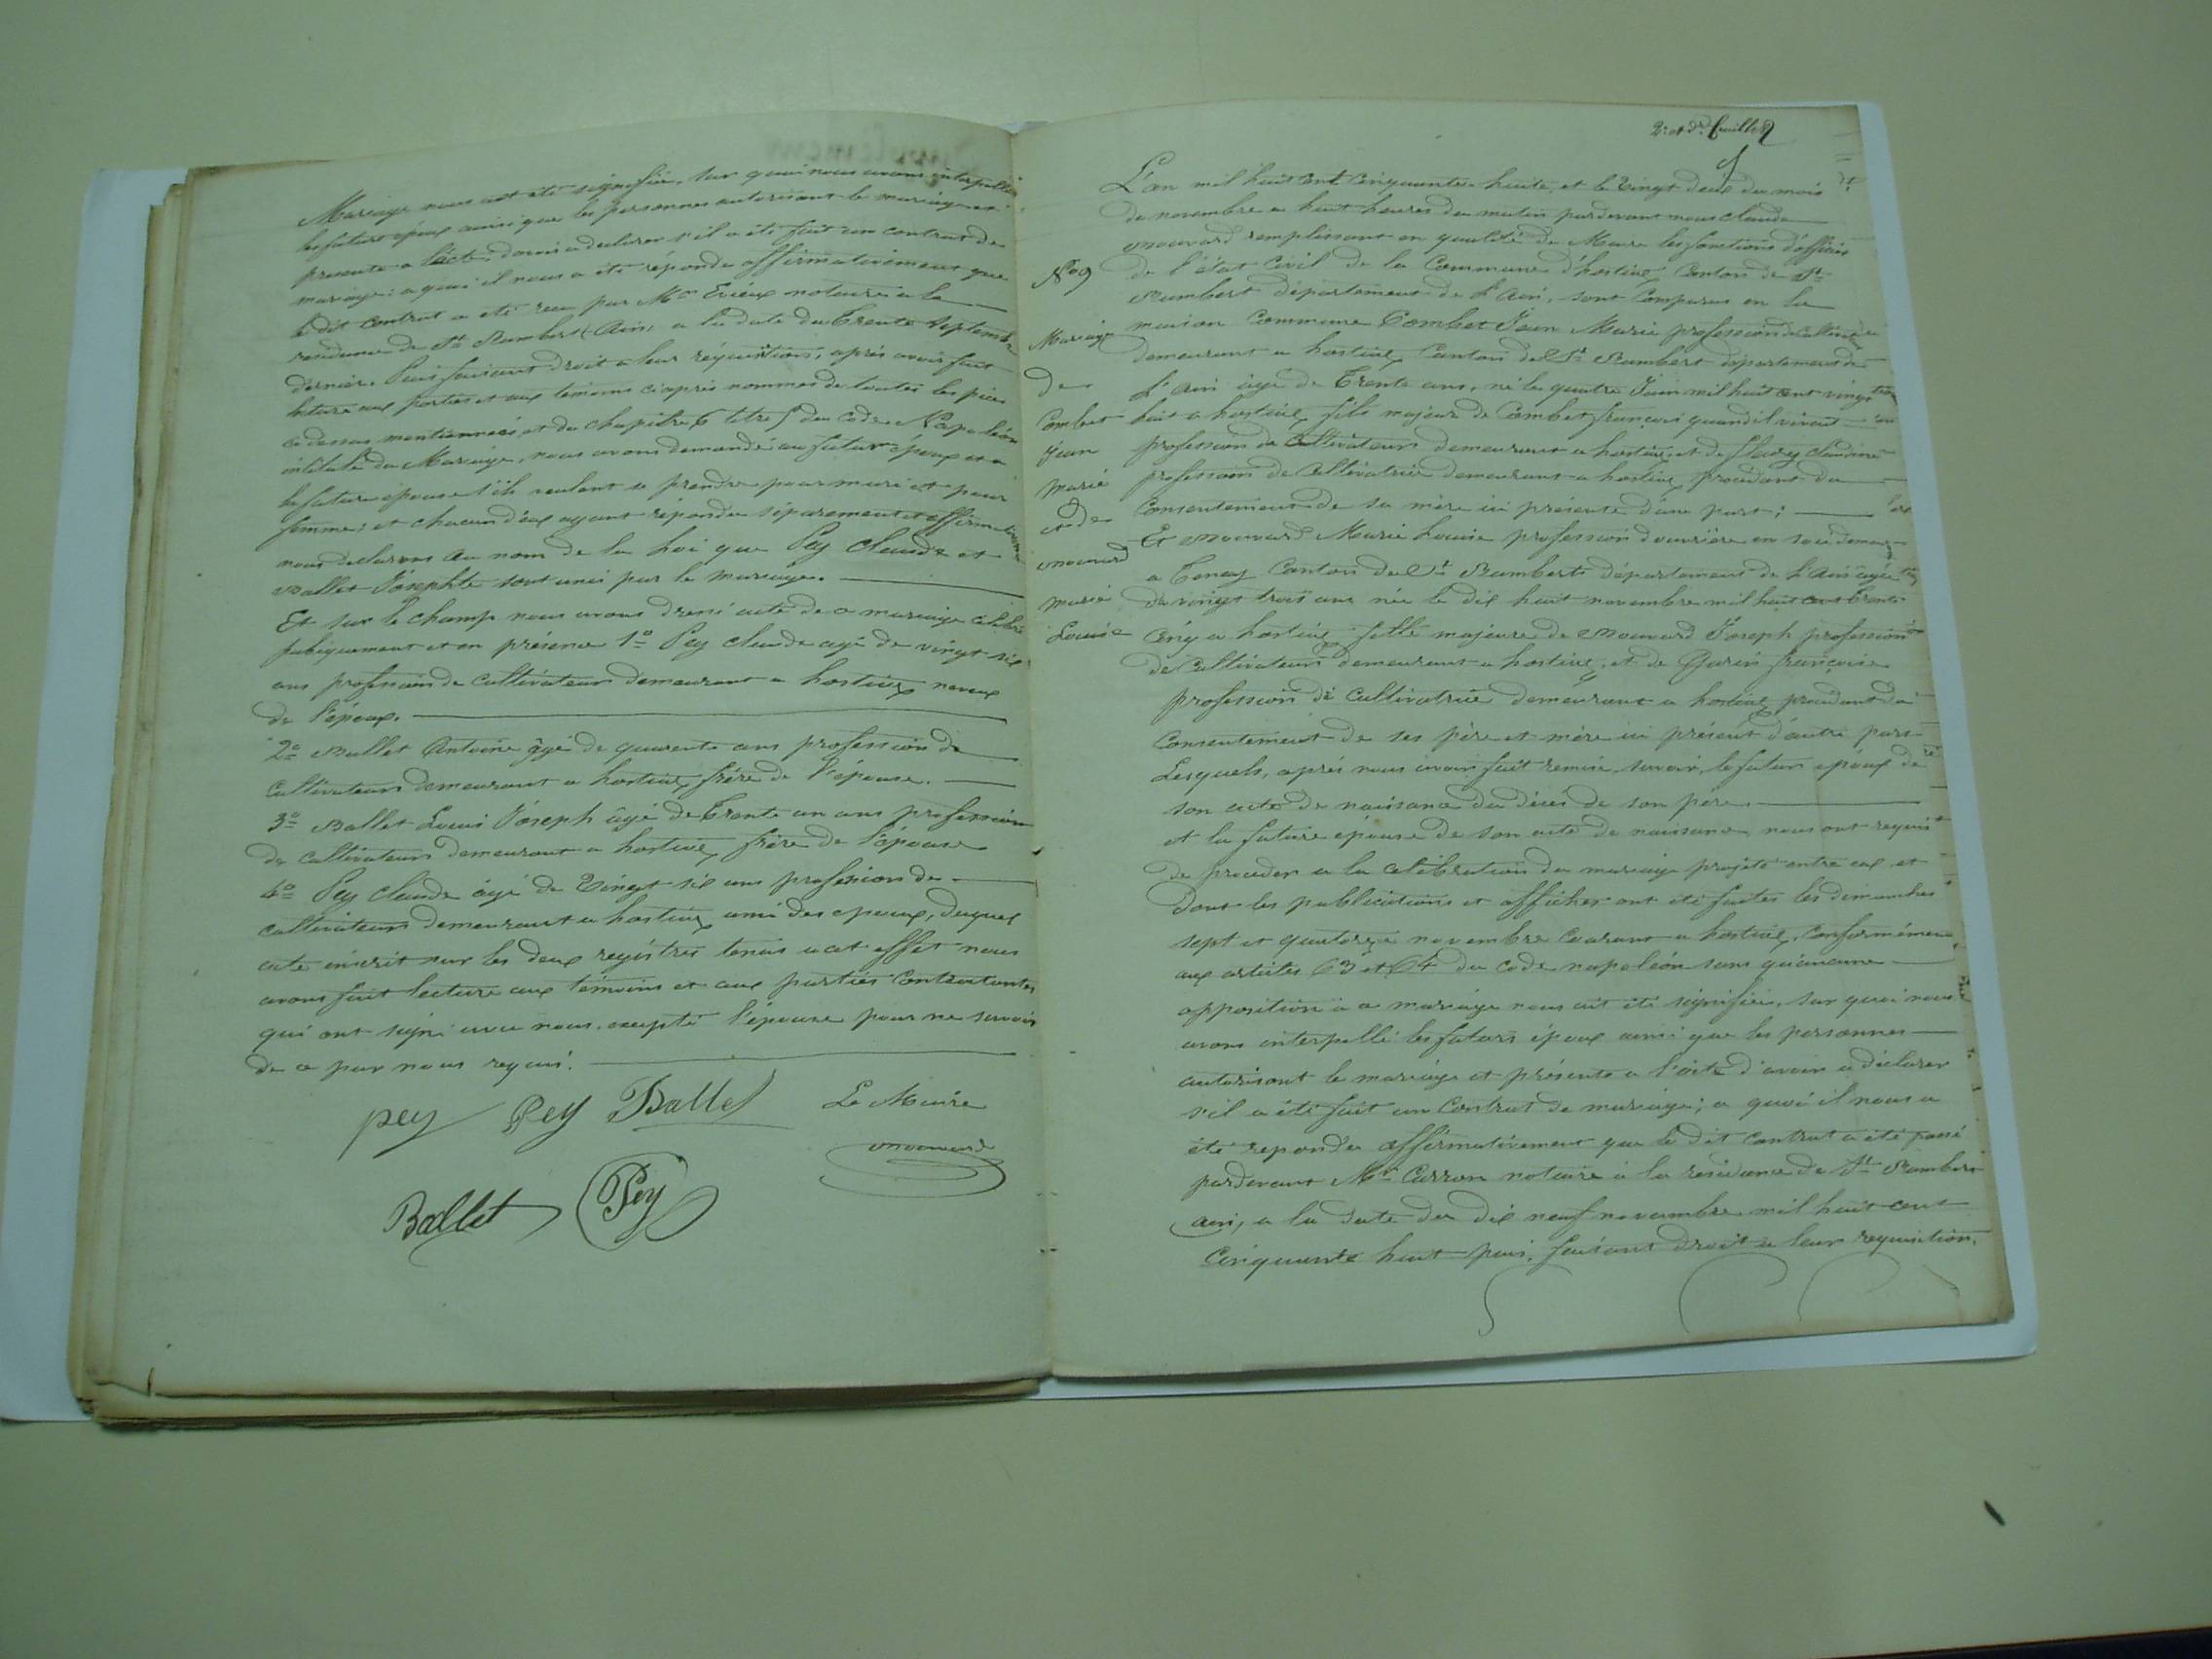 Mariage nous ait été signifié, sur quoi nous avons interpellé
les futurs époux ainsi que les personnes autorisant le mariage et
presente a l'acte, d'avoir a declarer s'il a été fait un contrat de
mariage; a quoi il nous a été répondu affirmativement que
le dit contrat a eté recu par Me Evieux notaire a la
residence de St Rambert (Ain) a la date du trente septembre
dernier. Puis faisant droit a leur réquisition, aprés avoir fait
lecture aux parties et aux temoins ci-aprés nommés de toutes les pièces
ci dessus mentionnées, et du chapitre 6 titre 5 du Code Napoléon
intitulé du Mariage, nous avons demandé au futur époux et a
la future épouse s'ils veulent se prendre pour mari et pour
femme; et chacun d'eux ayant répondu séparement et affirmativement
nous declarons au nom de la loi que Pey Claude et
Ballet Joséphte sont unis par le mariage.
Et sur le champ nous avons dressé acte de ce mariage célébré
publiquement et en présence 1o Pey Claude agé de vingt six
ans profession de cultivateur demeurant a hostiaz neveux
de l'époux.
2o Ballet Antoine âgé de quarente ans profession de
cultivateur demeurant a hostiaz frère de l'épouse.
3o Ballet Louis Joseph âgé de trente un ans profession
de cultivateur demeurant a hostiaz frère de l'épouse
4o Pey Claude âgé de vingt six ans profession de
cultivateur demeurant a hostiaz ami des epoux, duquel
acte inscrit sur les deux registres tenus a cet effet nous
avons fait lecture aux témoins et aux parties contractantes
qui ont signé avec nous, excepté l'épouse pour ne savoir
de ce par nous requis.
pey Pey Ballet Le Maire
mouvard
Ballet Pey
2e et dr feuillet
L'an mil huit cent cinquante huite, et le vingt deux du mois
de novembre a huit heures du matin pardevant nous claude
mouvard remplissant en qualité de Maire les fonctions d'officier
No 9
de l'état civil de la Commune d'hostiaz, Canton de St
Rambert département de l'Ain, sont comparus en la
maison Commune Combet Jean Marie profession de cultivateur
demeurant a hostiaz Canton de St Rambert département de
l'Ain âgé de trente ans, né le quatre Juin mil huit cent vingt
huit a hostiaz, fils majeur de Combet françois quand il vivait
profession de cultivateur demeurant a hostiaz, et de Claudine
profession de cultivatrice demeurant a hostiaz procédant du
Consentement de sa mère ici présente d'une part;
Mariage
de
Combet
Jean
Marie
et de
mouvard
Marie
Louise
Et mouvard Marie Louise profession d'ouvrière en soie demeurant
a Tenay Canton de St Rambert département de l'Ain agée
de vingt trois ans née le dix huit novembre mil huit cent trente
cinq a hostiaz fille majeure de mouvard Joseph profession
de cultivateur demeurant a hostiaz, et de Garin françoise
profession de cultivatrice demeurant a hostiaz procédant du
Consentement de ses père et mère ici présent d'autre part
Lesquels, aprés nous avoir fait remise, savoir, le futur epoux de
son acte de naissance du décés de son père
et la future épouse de son acte de naissance nous ont requis
de proceder a la célébration du mariage projeté entre eux et
dont les publications et affiches ont été faites les dimanches
sept et quatorze novembre courant a hostiaz, conformément
aux articles 63 et 64 du code napoléon sans qu'aucune
opposition a ce mariage nous ait été signifiée, sur quoi nous
avons interpellé les futurs époux ainsi que les personnes
autorisant le mariage et présente a l'acte d'avoir a déclarer
s'il a été fait un contrat de mariage; a quoi il nous a
été repondu affirmativement que le dit contrat a été passé
pardevant Me Carron notaire a la residence de St Rambert
(Ain) a la date du dix neuf novembre mil huit cent
cinquante huit puis, faisant droit a leur requisition,